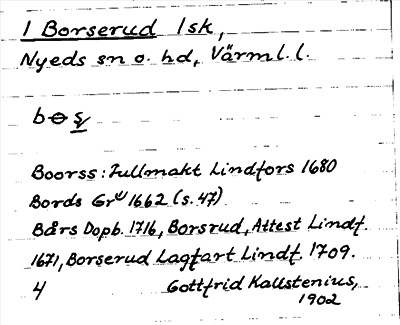 1 Borserud 1 sk,
Nyeds sn o. hd, Värml. l.
bɵş
Boorss: Fullmakt Lindfors 1680
Bords Grᵘ 1662 (s. 47)
Bårs Dopb. 1716, Borsrud, Attest Lindf.
1671, Borserud Lagfart Lindf. 1709.
4 Gottfrid Kallstenius,
1902